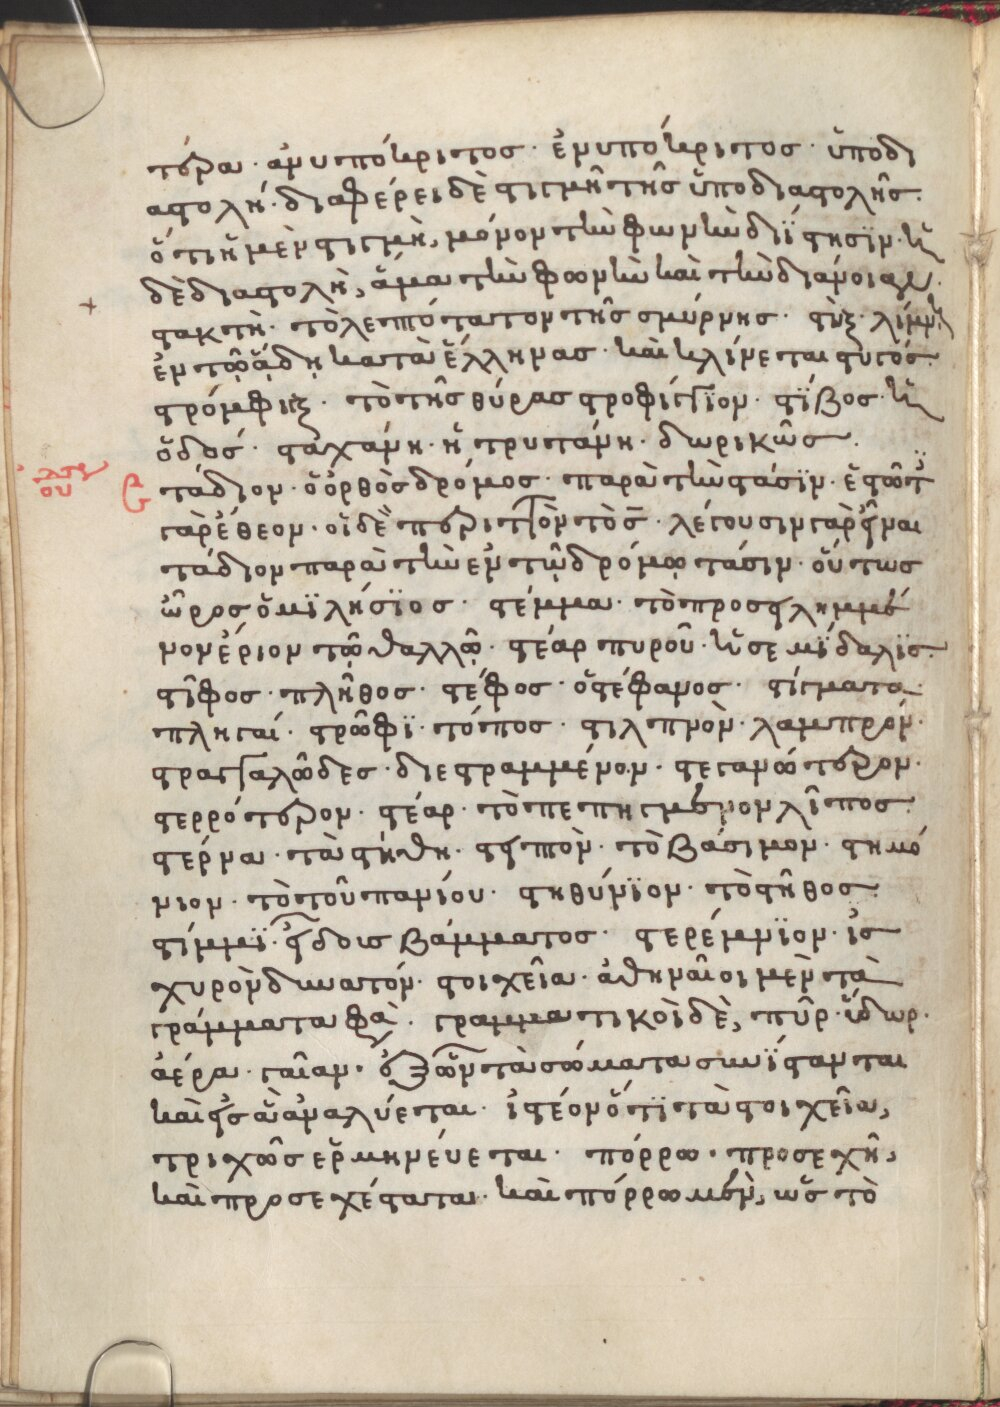 τέρα · ἀνυπόκριτος · ἐνυπόκριτος · ὑποδι
αστολή · διαφέρει δὲ στιγμὴ τῆς ὑποδιαστολῆς ·
ὅτι ἡ μὲν στιγμὴ, μόνον τὴν φωνὴν διΐστησϊν · ἡ
δὲ διαστολὴ, ἅμα τὴν φωνὴν καὶ τὴν διάνοιαν ·
στακτὴ · τὸ λεπτότατον τῆς σμύρνης · στὺξ · λίμνη
ἐν τῷ ἅδῃ κατὰ ἕλληνας · καὶ κλίνεται στυγός ·
στρόμφιγξ · τὸ τῆς θύρας στροφίγγϊον · στίβος · ἡ
ὁδός · σταχάνη · ἡ τρυτάνη · δωρικῶς ·
στάδιον · ὁ ὀρθὸς δρόμος · παρὰ τὴν στάσϊν · ἑστῶτες
γὰρ ἔθεον · οἱ δὲ περιττὸν τὸ σ̄ · λέγουσιν γὰρ εἶναι
τάδιον παρὰ τὴν ἐν τῷ δρόμῳ τάσιν · οὕτως
ὦρος ὁ μϊλήσϊος · στέμμα · τὸ προσειλημμέ
νον ἔριον τῷ θαλλῷ · στέαρ πυροῦ · ἡ σεμΐδαλϊς ·
στῖφος · πλῆθος · στέφος · ὁ στέφανος · στίγματα
πληγαί · στρῶφϊ · τόπος · στιλπνὸν · λαμπρόν ·
στραγγαλῶδες · διεστραμμένον · στεγανώτερον ·
στερρότερον · στέαρ · τὸ πεπηγμένον λῖπος ·
στέρνα · τὰ στήθη · στειπτὸν · τὸ βάσιμον · στημό
νιον · τὸ τοῦ πανίου · στηθύνϊον · τὸ στῆθος
στίμμϊ · εἶδοις βάμματος · στερέμνϊον · ἰσ
χυρὸν δυνατόν · στοιχεῖα · ἀθηναῖοι μὲν τὰ
γράμματα φασὶ · γραμματικοὶ δὲ, πῦρ · ὕδωρ ·
ἀέρα · γαῖαν · ἐξ ὧν τὰ σώματα συνΐστανται
καὶ εἰς ἃ ἀναλύεται · ἰστέον ὅτϊ τὰ στοιχεῖα,
τριχῶς ἑρμηνεύεται · πόρρω · προσεχῆ,
καὶ προσεχέστατα · καὶ πόρρω μὲν, ὡς τὸ